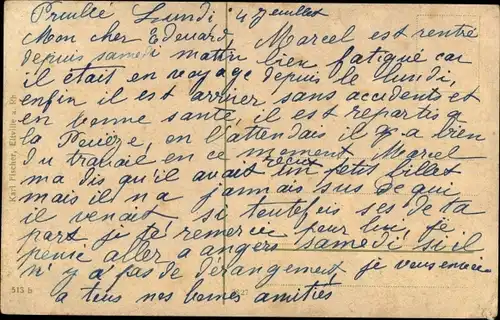 Pruillé Lundi 4 Jeuillet
Mon cher Edouard, Marcel est rentré
depuis samedi matin bien fatigué car
il était en voyage depuis le lundi,
enfin il est arriver sans accidents et
en bonne santé, il est repartis a
la Pouëze, on l'attendais il y a bien
du travail en ce moment, Marcel
ma dis qu'il avait recut un petit billet
mais il na jamais sus de qui
il venait si toutefois ses de ta
part je te remercie pour lui, je
pense aller a angers samedi si il
n'y a pas de dérangement, je vous envoie
a tous nos bonnes amitiés
Karl Fischer, Eltville a. Rh.
513 b